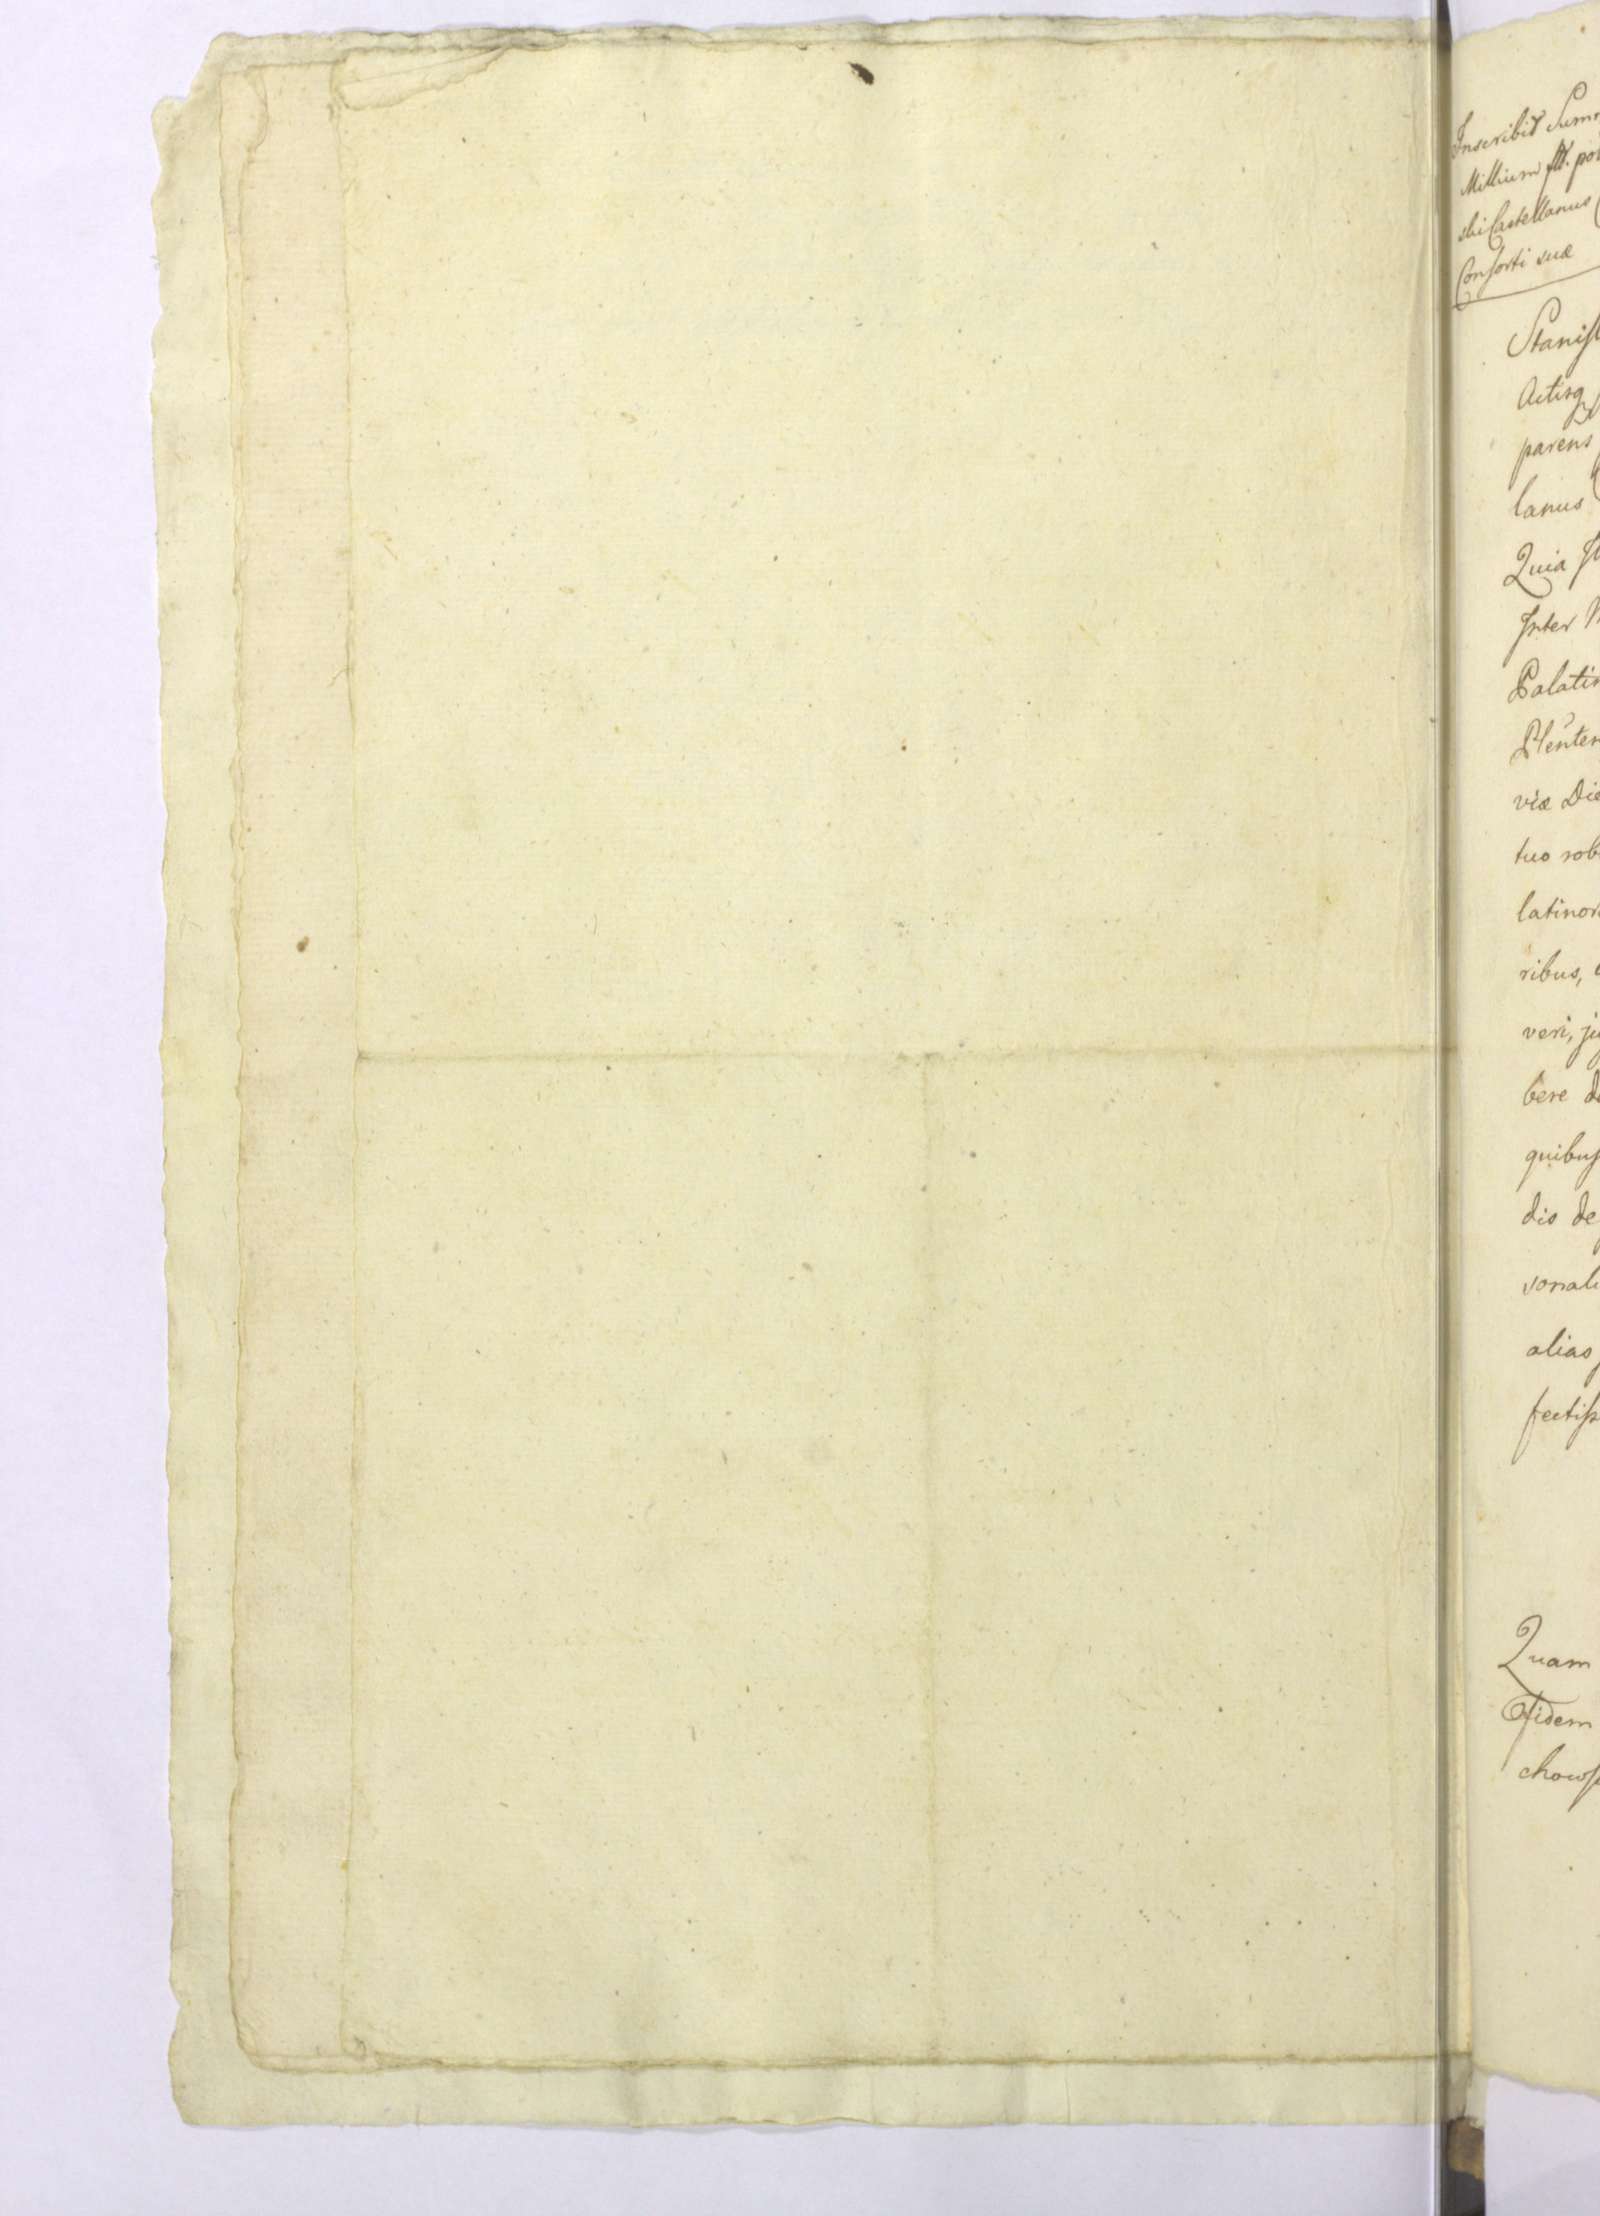 Inscribit Sum
Millium flł. pol
ski Castellanus
Consorti suæ
Stanisl
Actisq
parens
lanus
Quia
Inter
Palatin
viæ Die
tuo rob
latinor
ribus,
veri, ju
bere de
quibus
dis de
sonali
alias
fectiss
Quam
Ofidem
chows